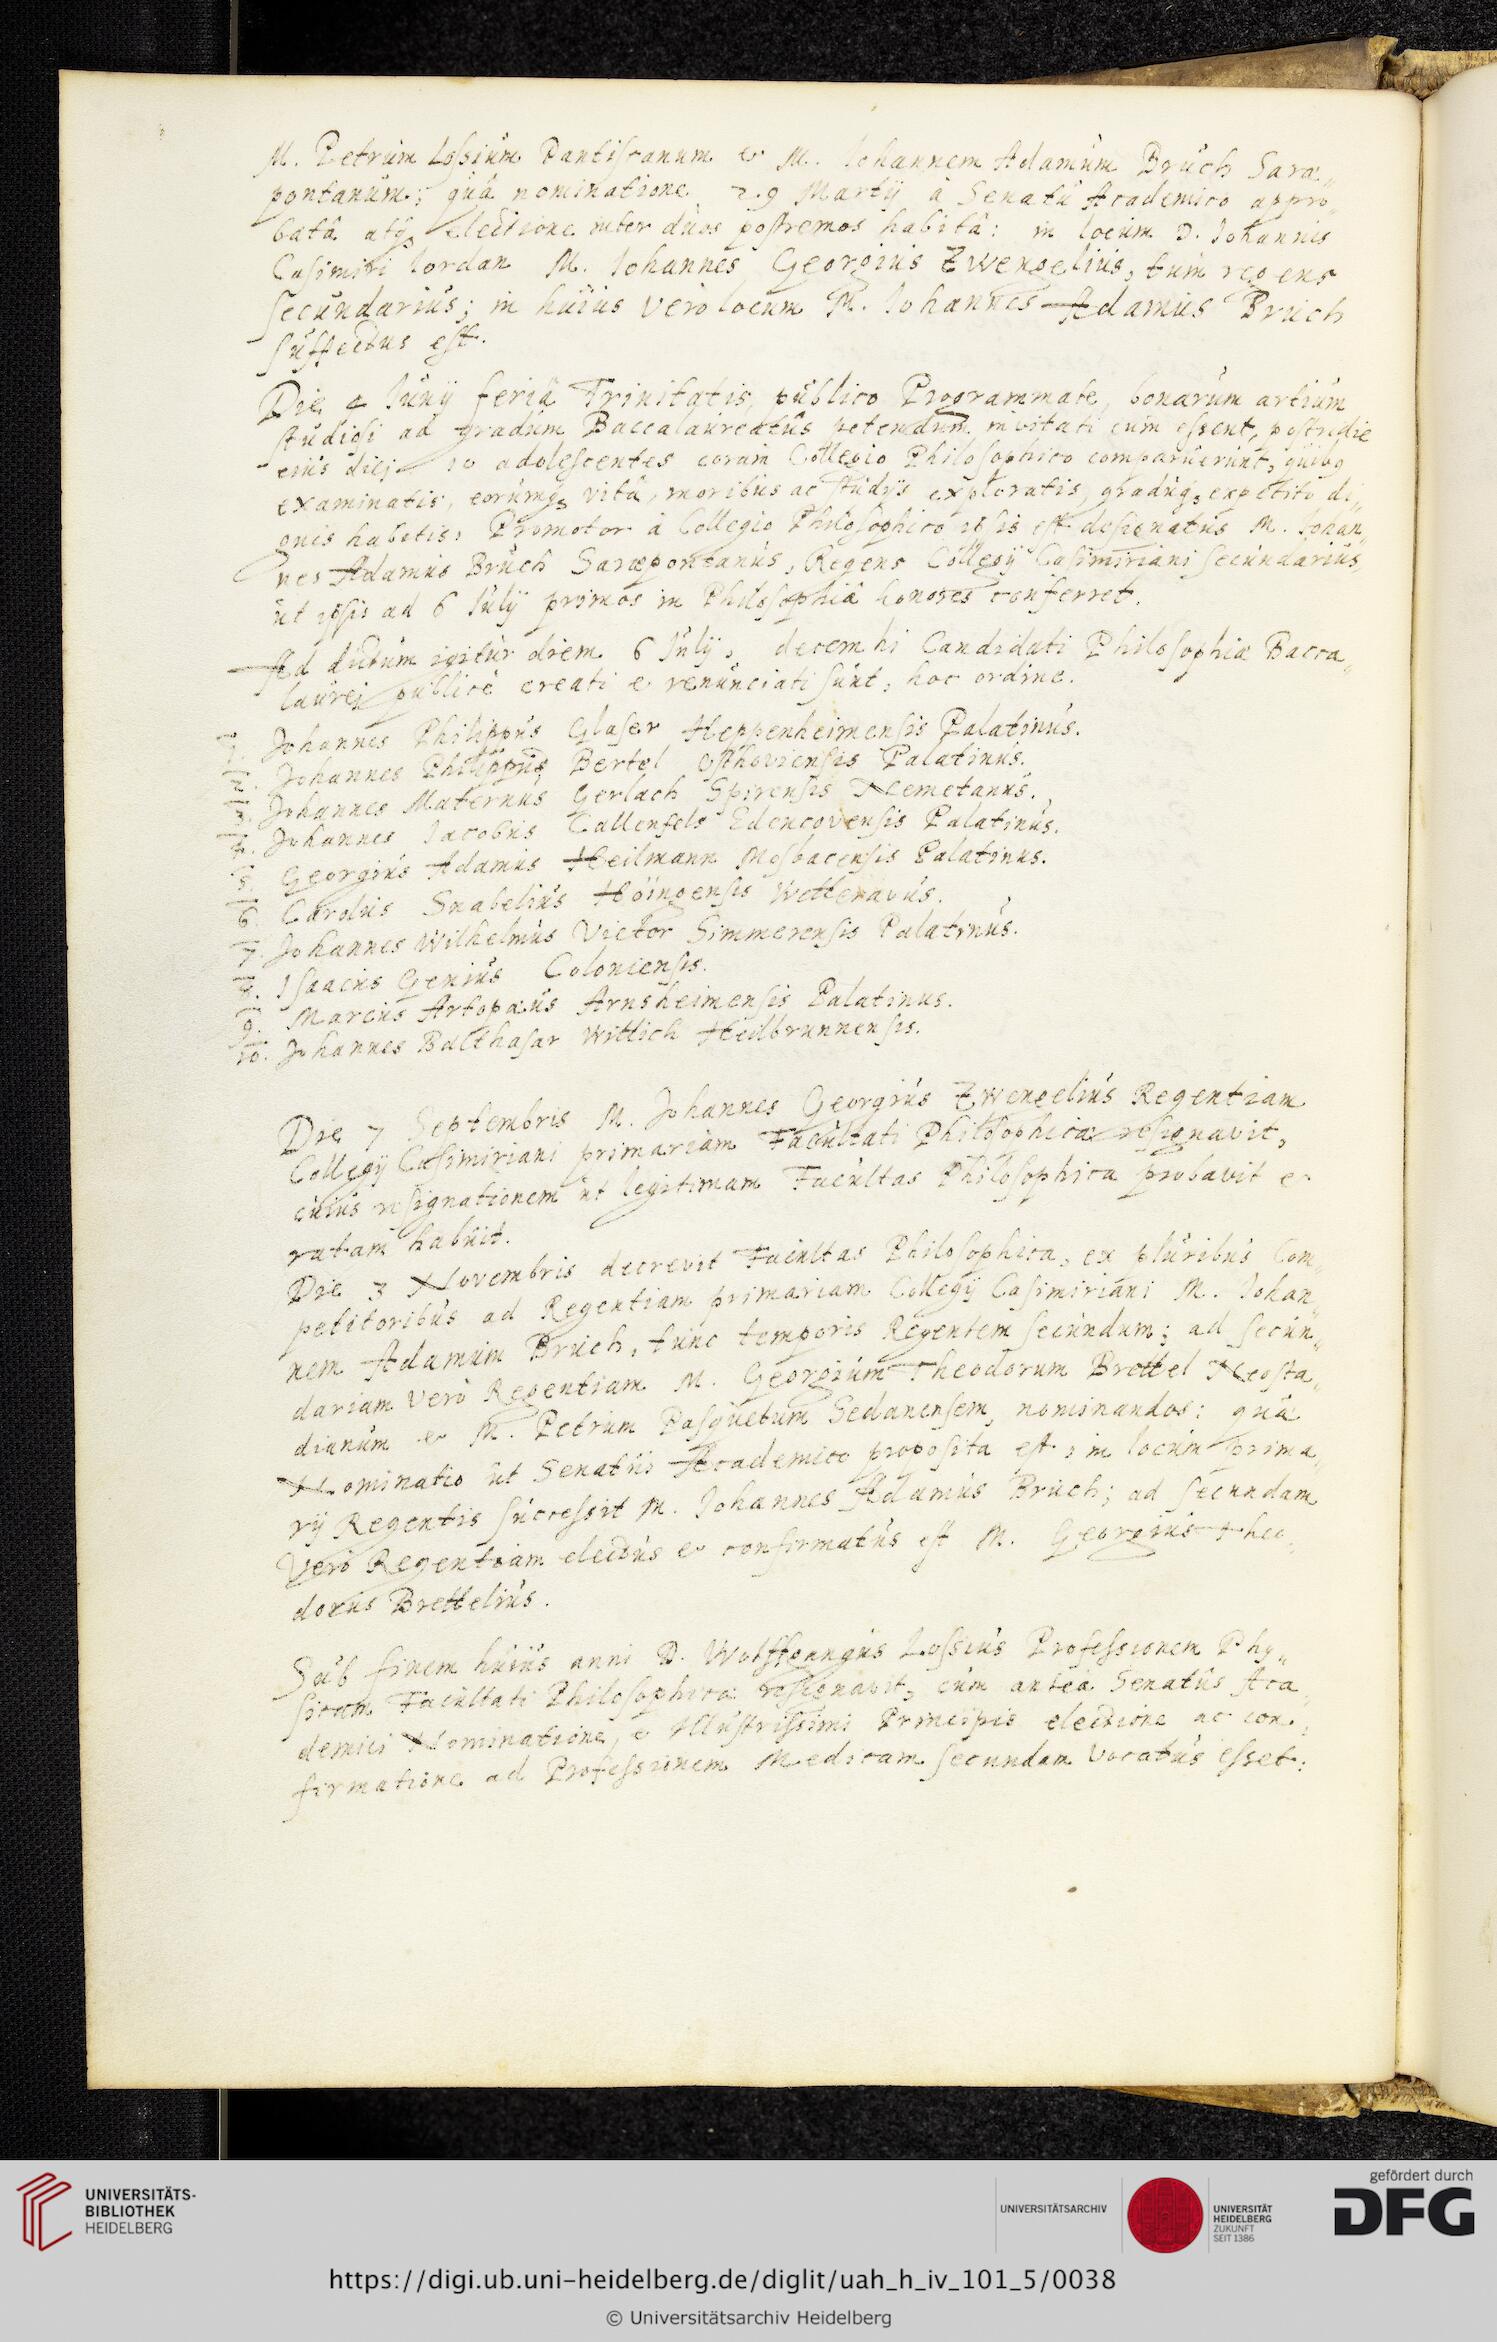 M. Petrum Lossium Dantiscanum & M. Iohannem Adamum Bruch Saræ„
pontanum; quâ nominatione 29 Martij à Senatu Academico appro„
batâ atq, electione inter duos postremos habitâ: in locum D. Iohannis
Casimiri Iordan M. Iohannes Georgius Zwengelius, tum regens
secundarius; in huius verò locum M. Iohannes Adamus Bruch
suffectus est.
Die 4 Iunij feriâ Trinitatis, publico Programmate, bonarum artium
studiosi ad gradum Baccalaureatûs petendum invitati cum essent, postridie
eius diej 10 adolescentes coram Collegio Philosophico comparuerunt, quibq
examinatis, eorumq, vitâ, moribus ac studijs exploratis, graduq, expetito di„
gnis habitis, Promotor à Collegio Philosophico ipsis est designatus M. Iohan„
nes Adamus Bruch Saræpontanus, Regens Collegij Casimiriani secundarius,
ut ipsis ad 6 Iulij primos in Philosophiâ honores conferret.
Ad dictum igitur diem 6 Iulij, decem hi Candidati Philosophiæ Bacca„
laurej publicè creati & renunciati sunt, hoc ordine.
1. Johannes Philippus Glaser Heppenheimensis Palatinus.
2. Johannes Philippus Bertel Osthoviensis Palatinus.
3. Johannes Maternus Gerlach Spirensis Nemetanus.
4. Johannes Iacobus Callenfels Edencovensis Palatinus.
5. Georgius Adamus Heilmann Mosbacensis Palatinus.
6. Carolus Snabelius Höingensis Wetteravus.
7. Johannes Wilhelmus Victor Simmerensis Palatinus.
8. Isaacus Genius Coloniensis.
9. Marcus Artopæus Arnsheimensis Palatinus.
10. Johannes Balthasar Wittich Heilbrunnensis.
Die 7 Septembris M. Johannes Georgius Zwengelius Regentiam
Collegij Casimiriani primariam Facultati Philosophicæ resignavit,
cuius resignationem ut legitimam Facultas Philosophica probavit &
ratam habuit.
Die 3 Novembris decrevit Facultas Philosophica, ex pluribus Com„
petitoribus ad Regentiam primariam Collegij Casimiriani M. Iohan„
nem Adamum Bruch, tunc temporis Regentem secundum; ad secun„
dariam verò Regentiam M. Georgium Theodorum Brettel Neosta„
dianum & M. Petrum Pasquetum Sedanensem, nominandos: quæ
Nominatio ut Senatui Academico proposita est, in locum prima„
rij Regentis successit M. Iohannes Adamus Bruch; ad secundam
verò Regentiam electus & confirmatus est M. Georgius Theo„
dorus Brettelius.
Sub finem huius anni D. Wolffgangus Lossius Professionem Phy„
sicam Facultati Philosophicæ resignavit, cum anteà Senatûs Aca„
demici Nominatione, & Illustrissimi Principis electione ac con„
firmatione ad Professionem Medicam secundam vocatus esset.
UNIVERSITÄTS-
BIBLIOTHEK
HEIDELBERG
UNIVERSITÄTSARCHIV
UNIVERSITÄT
HEIDELBERG
ZUKUNFT
SEIT 1386
gefördert durch
DFG
https://digi.ub.uni-heidelberg.de/diglit/uah_h_iv_101_5/0038
© Universitätsarchiv Heidelberg